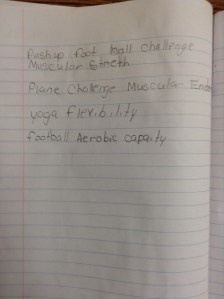 Push up foot ball challenge
Muscular Streth
Plane Challenge Muscular Endu
yoga flexibility
football Aerobic capaity